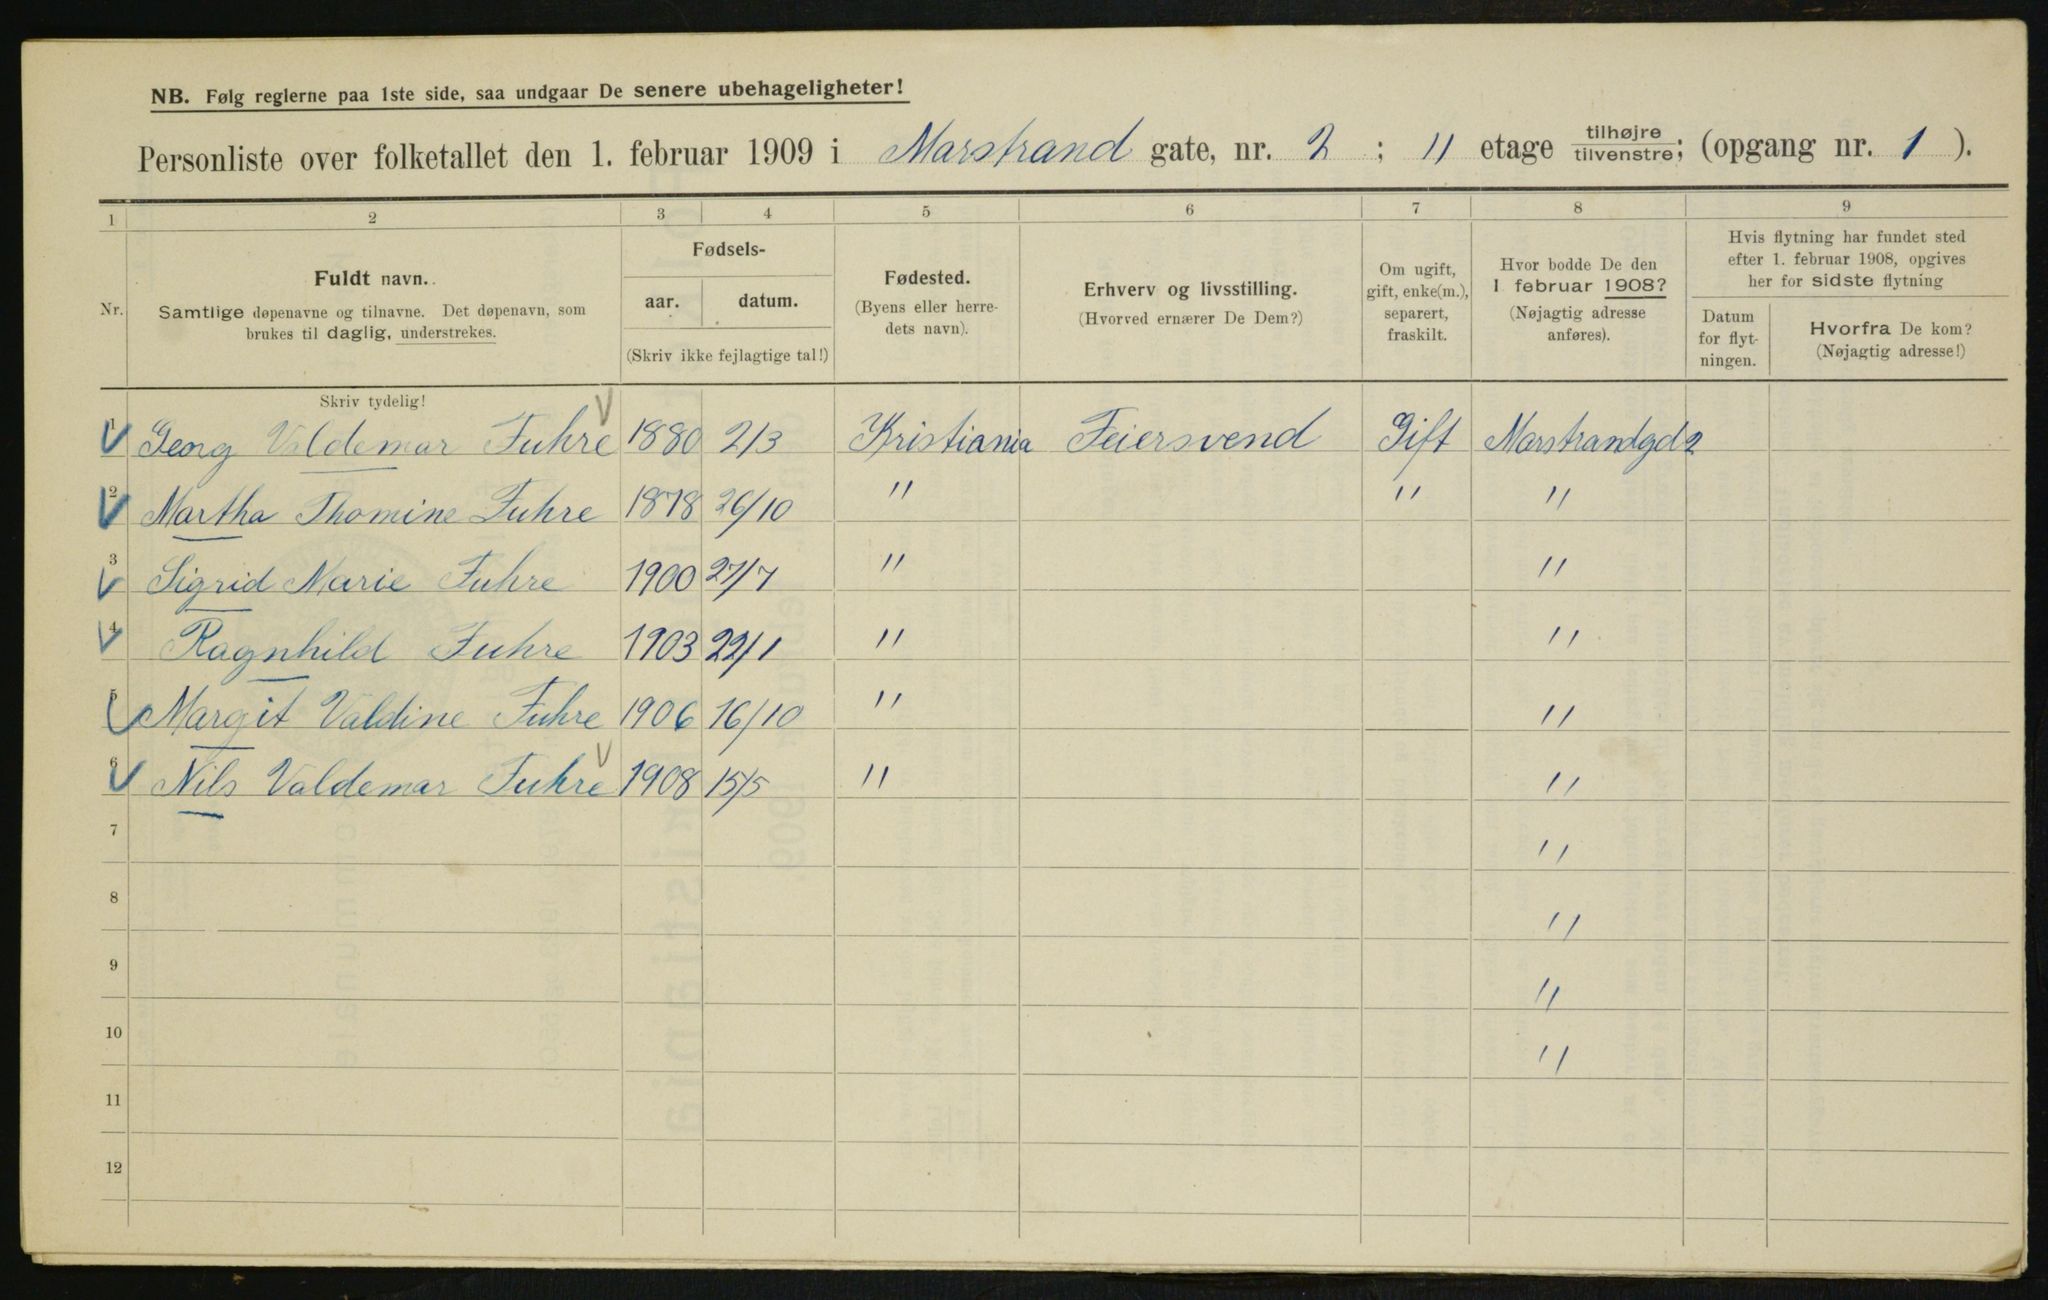 NB. Følg reglerne paa 1ste side, saa undgaar De senere ubehageligheter!
Personliste over folketallet den 1. februar 1909 i Marstrand gate, nr. 2 ; 11 etage tilhøjre tilvenstre; (opgang nr. 1 ).
1 2 3 4 5 6 7 8 9
Nr.
Fuldt navn.
Samtlige døpenavne og tilnavne. Det døpenavn, som
brukes til daglig, understrekes.
Fødsels-
aar. datum.
(Skriv ikke fejlagtige tal!)
Fødested.
(Byens eller herre-
dets navn).
Erhverv og livsstilling.
(Hvorved ernærer De Dem?)
Om ugift,
gift, enke(m.),
separert,
fraskilt.
Hvor bodde De den
1 februar 1908?
(Nøjagtig adresse
anføres).
Hvis flytning har fundet sted
efter 1. februar 1908, opgives
her for sidste flytning
Datum
for flyt-
ningen.
Hvorfra De kom?
(Nøjagtig adresse!)
Skriv tydelig!
1 Georg Valdemar Fuhre 1880 2/3 Kristiania Feiersvend Gift Marstrandgd 2
2 Martha Thomine Fuhre 1878 26/10 " " "
3 Sigrid Marie Fuhre 1900 27/7 " "
4 Ragnhild Fuhre 1903 22/1 " "
5 Margit Valdine Fuhre 1906 16/10 " "
6 Nils Valdemar Fuhre 1908 15/5 " "
7 "
8 "
9 "
10 "
11
12